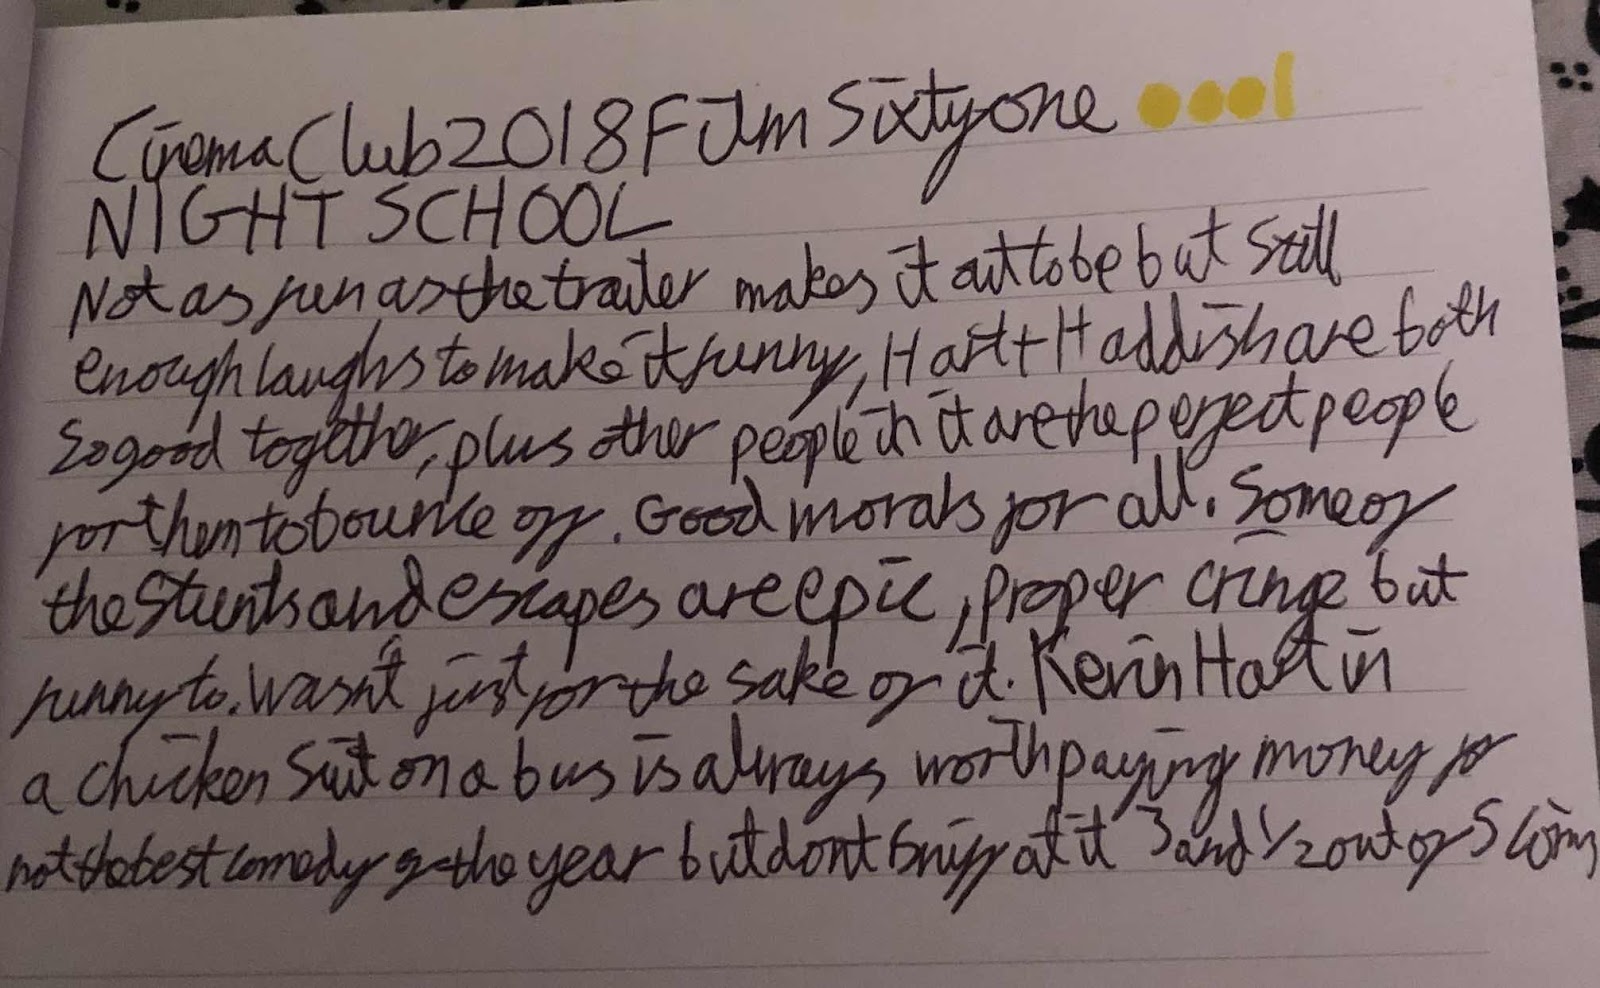 Cinema Club 2018 Film Sixty one
NIGHT SCHOOL
Not as fun as the trailer makes it out to be but still
enough laughs to make it funny, Hart + Haddish are both
so good together, plus other people in it are the perfect people
for them to bounce off. Good morals for all. Some of
the stunts and escapes are epic, proper cringe but
funny to. Wasn't just for the sake of it. Kevin Hart in
a chicken suit on a bus is always worth paying money for
not the best comedy of the year but dont sniff at it 3 and 1/2 out of 5 coins